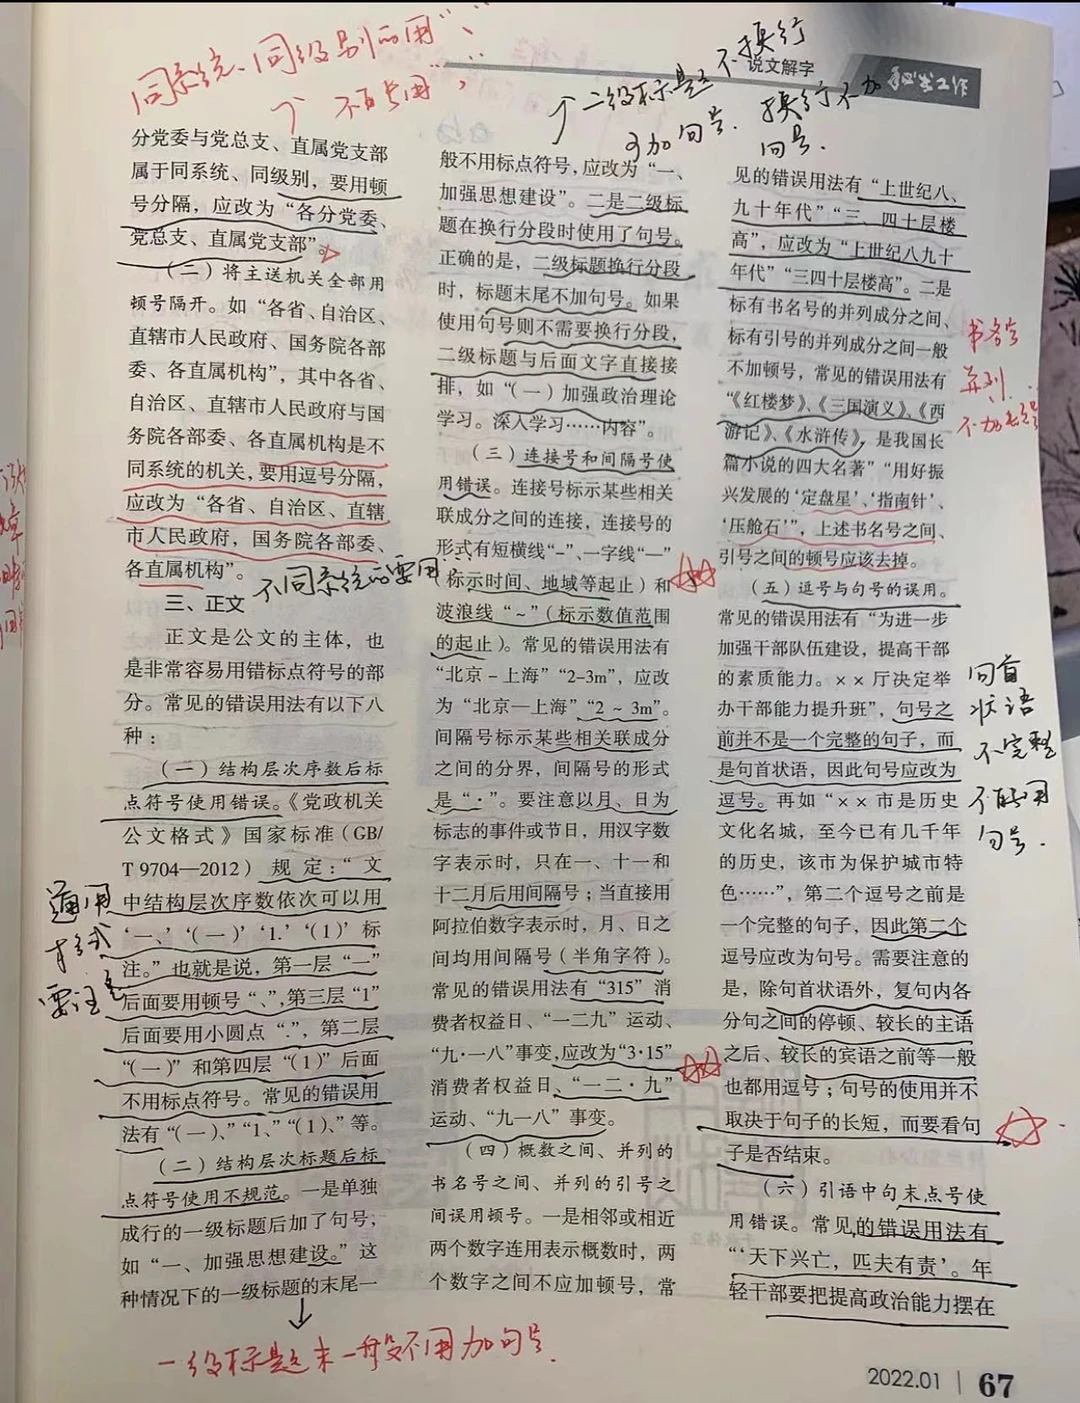 同系统、同级别的用"、"
个 不能用"，"
个二级标题不换行
可加句号.
换行不加
句号.
说文解字
秘书工作
分党委与党总支、直属党支部
属于同系统、同级别，要用顿
号分隔，应改为“各分党委、
党总支、直属党支部”。
（二）将主送机关全部用
顿号隔开。如“各省、自治区、
直辖市人民政府、国务院各部
委、各直属机构”，其中各省、
自治区、直辖市人民政府与国
务院各部委、各直属机构是不
同系统的机关，要用逗号分隔，
应改为“各省、自治区、直辖
市人民政府，国务院各部委、
各直属机构”。
不同系统的要用，
三、正文
正文是公文的主体，也
是非常容易用错标点符号的部
分。常见的错误用法有以下八
种：
（一）结构层次序数后标
点符号使用错误。《党政机关
公文格式》国家标准（GB/
T 9704—2012）规定：“文
中结构层次序数依次可以用
‘一、’‘（一）’‘1.’‘（1）’标
注。”也就是说，第一层“一”
后面要用顿号“、”，第三层“1”
后面要用小圆点“.”，第二层
“（一）”和第四层“（1）”后面
不用标点符号。常见的错误用
法有“（一）、”“1、”“（1）、”等。
通用
格式
要注意
（二）结构层次标题后标
点符号使用不规范。一是单独
成行的一级标题后加了句号，
如“一、加强思想建设。”这
种情况下的一级标题的末尾一
一级标题末一般不用加句号.
般不用标点符号，应改为“一、
加强思想建设”。二是二级标
题在换行分段时使用了句号。
正确的是，二级标题换行分段
时，标题末尾不加句号。如果
使用句号则不需要换行分段，
二级标题与后面文字直接接
排，如“（一）加强政治理论
学习。深入学习……内容”。
（三）连接号和间隔号使
用错误。连接号标示某些相关
联成分之间的连接，连接号的
形式有短横线“-”、一字线“—”
（标示时间、地域等起止）和
波浪线“~”（标示数值范围
的起止）。常见的错误用法有
“北京－上海”“2-3m”，应改
为“北京—上海”“2 ~ 3m”。
间隔号标示某些相关联成分
之间的分界，间隔号的形式
是“·”。要注意以月、日为
标志的事件或节日，用汉字数
字表示时，只在一、十一和
十二月后用间隔号；当直接用
阿拉伯数字表示时，月、日之
间均用间隔号（半角字符）。
常见的错误用法有“315”消
费者权益日、“一二九”运动、
“九·一八”事变，应改为“3·15”
消费者权益日、“一二·九”
运动、“九一八”事变。
（四）概数之间、并列的
书名号之间、并列的引号之
间误用顿号。一是相邻或相近
两个数字连用表示概数时，两
个数字之间不应加顿号，常
见的错误用法有“上世纪八、
九十年代”“三、四十层楼
高”，应改为“上世纪八九十
年代”“三四十层楼高”。二是
标有书名号的并列成分之间、
标有引号的并列成分之间一般
不加顿号，常见的错误用法有
“《红楼梦》、《三国演义》、《西
游记》、《水浒传》，是我国长
篇小说的四大名著”“用好振
兴发展的‘定盘星’、‘指南针’、
‘压舱石’”，上述书名号之间、
引号之间的顿号应该去掉。
书名号
并列
不加顿号
（五）逗号与句号的误用。
常见的错误用法有“为进一步
加强干部队伍建设，提高干部
的素质能力。××厅决定举
办干部能力提升班”，句号之
前并不是一个完整的句子，而
是句首状语，因此句号应改为
逗号。再如“××市是历史
文化名城，至今已有几千年
的历史，该市为保护城市特
色……”，第二个逗号之前是
一个完整的句子，因此第二个
逗号应改为句号。需要注意的
是，除句首状语外，复句内各
分句之间的停顿、较长的主语
之后、较长的宾语之前等一般
也都用逗号；句号的使用并不
取决于句子的长短，而要看句
子是否结束。
句首
状语
不完整
不能用
句号.
（六）引语中句末点号使
用错误。常见的错误用法有
“‘天下兴亡，匹夫有责’。年
轻干部要把提高政治能力摆在
2022.01 | 67